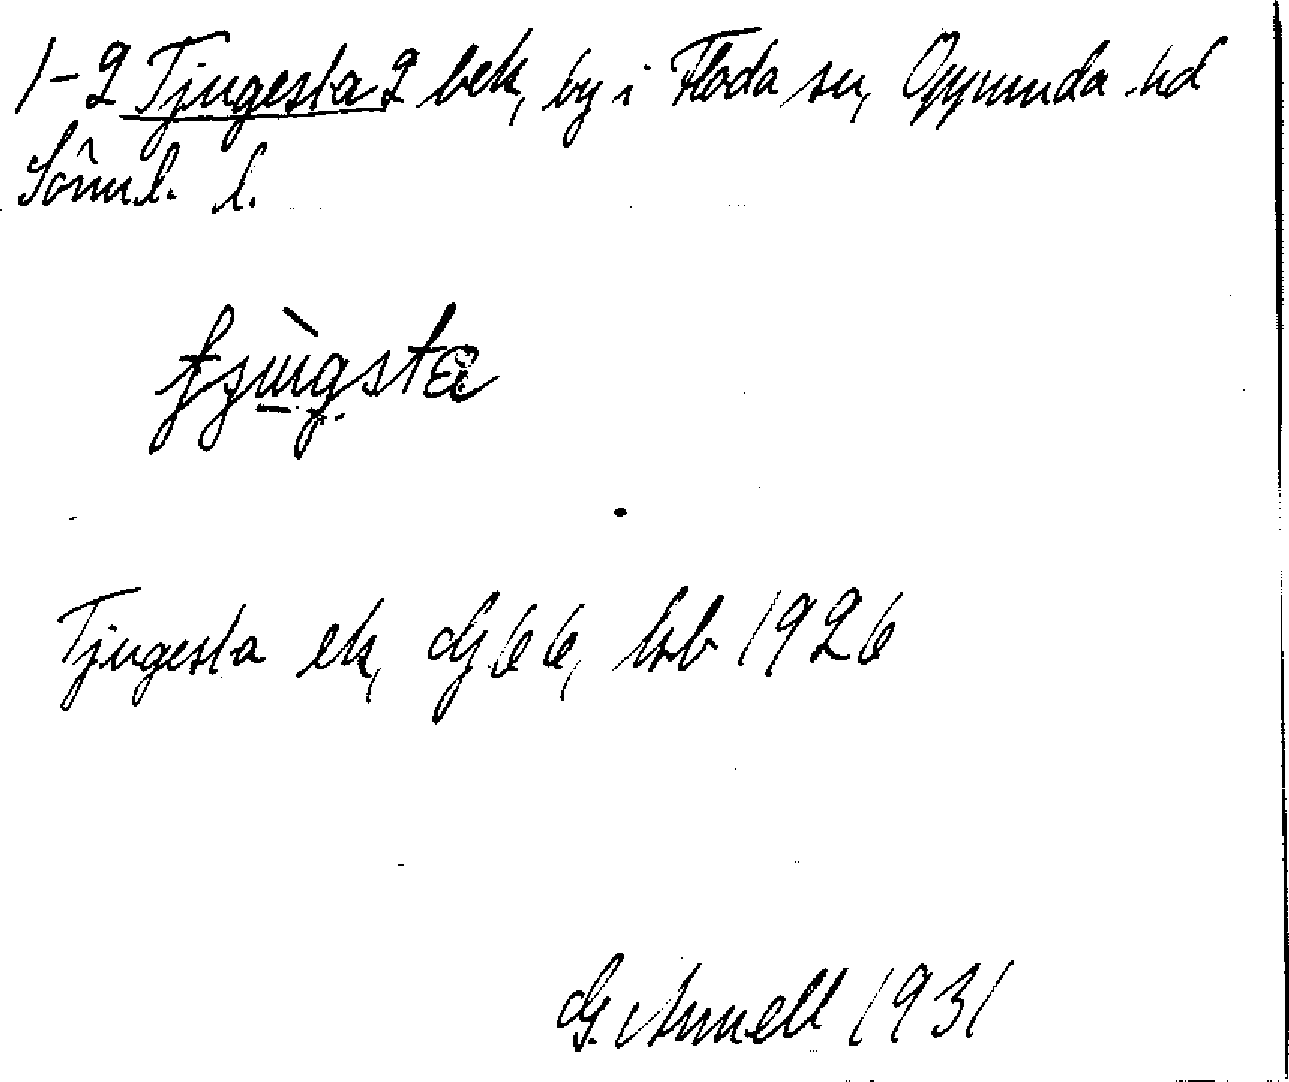 1-2 Tjugesta 2 bek, by i Floda sn, Oppunda hd
Sörml. l.
Tjugesta ek, G 66, lsb 1926
G. Arnell 1931